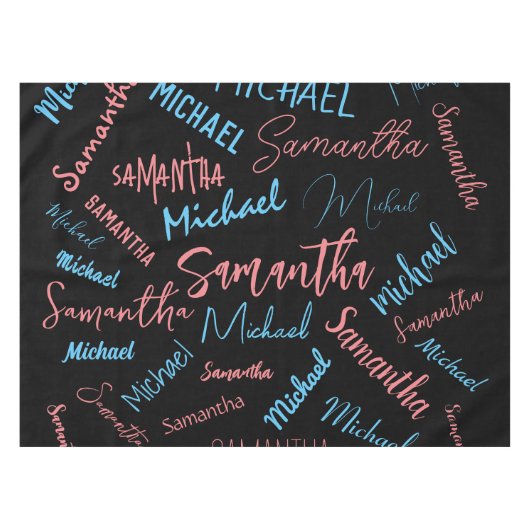 Michael
Samantha
MICHAEL
MICHAEL
Samantha
Michael
Samantha
SAMANTHA
Michael
Michael
Michael
SAMANTHA
Samantha
Michael
Michael
Samantha
Michael
Samantha
Samantha
Michael
Michael
Michael
Samantha
Michael
Samantha
Samantha
Samantha
Samantha
Michael
Michael
Samantha
SAMANTHA